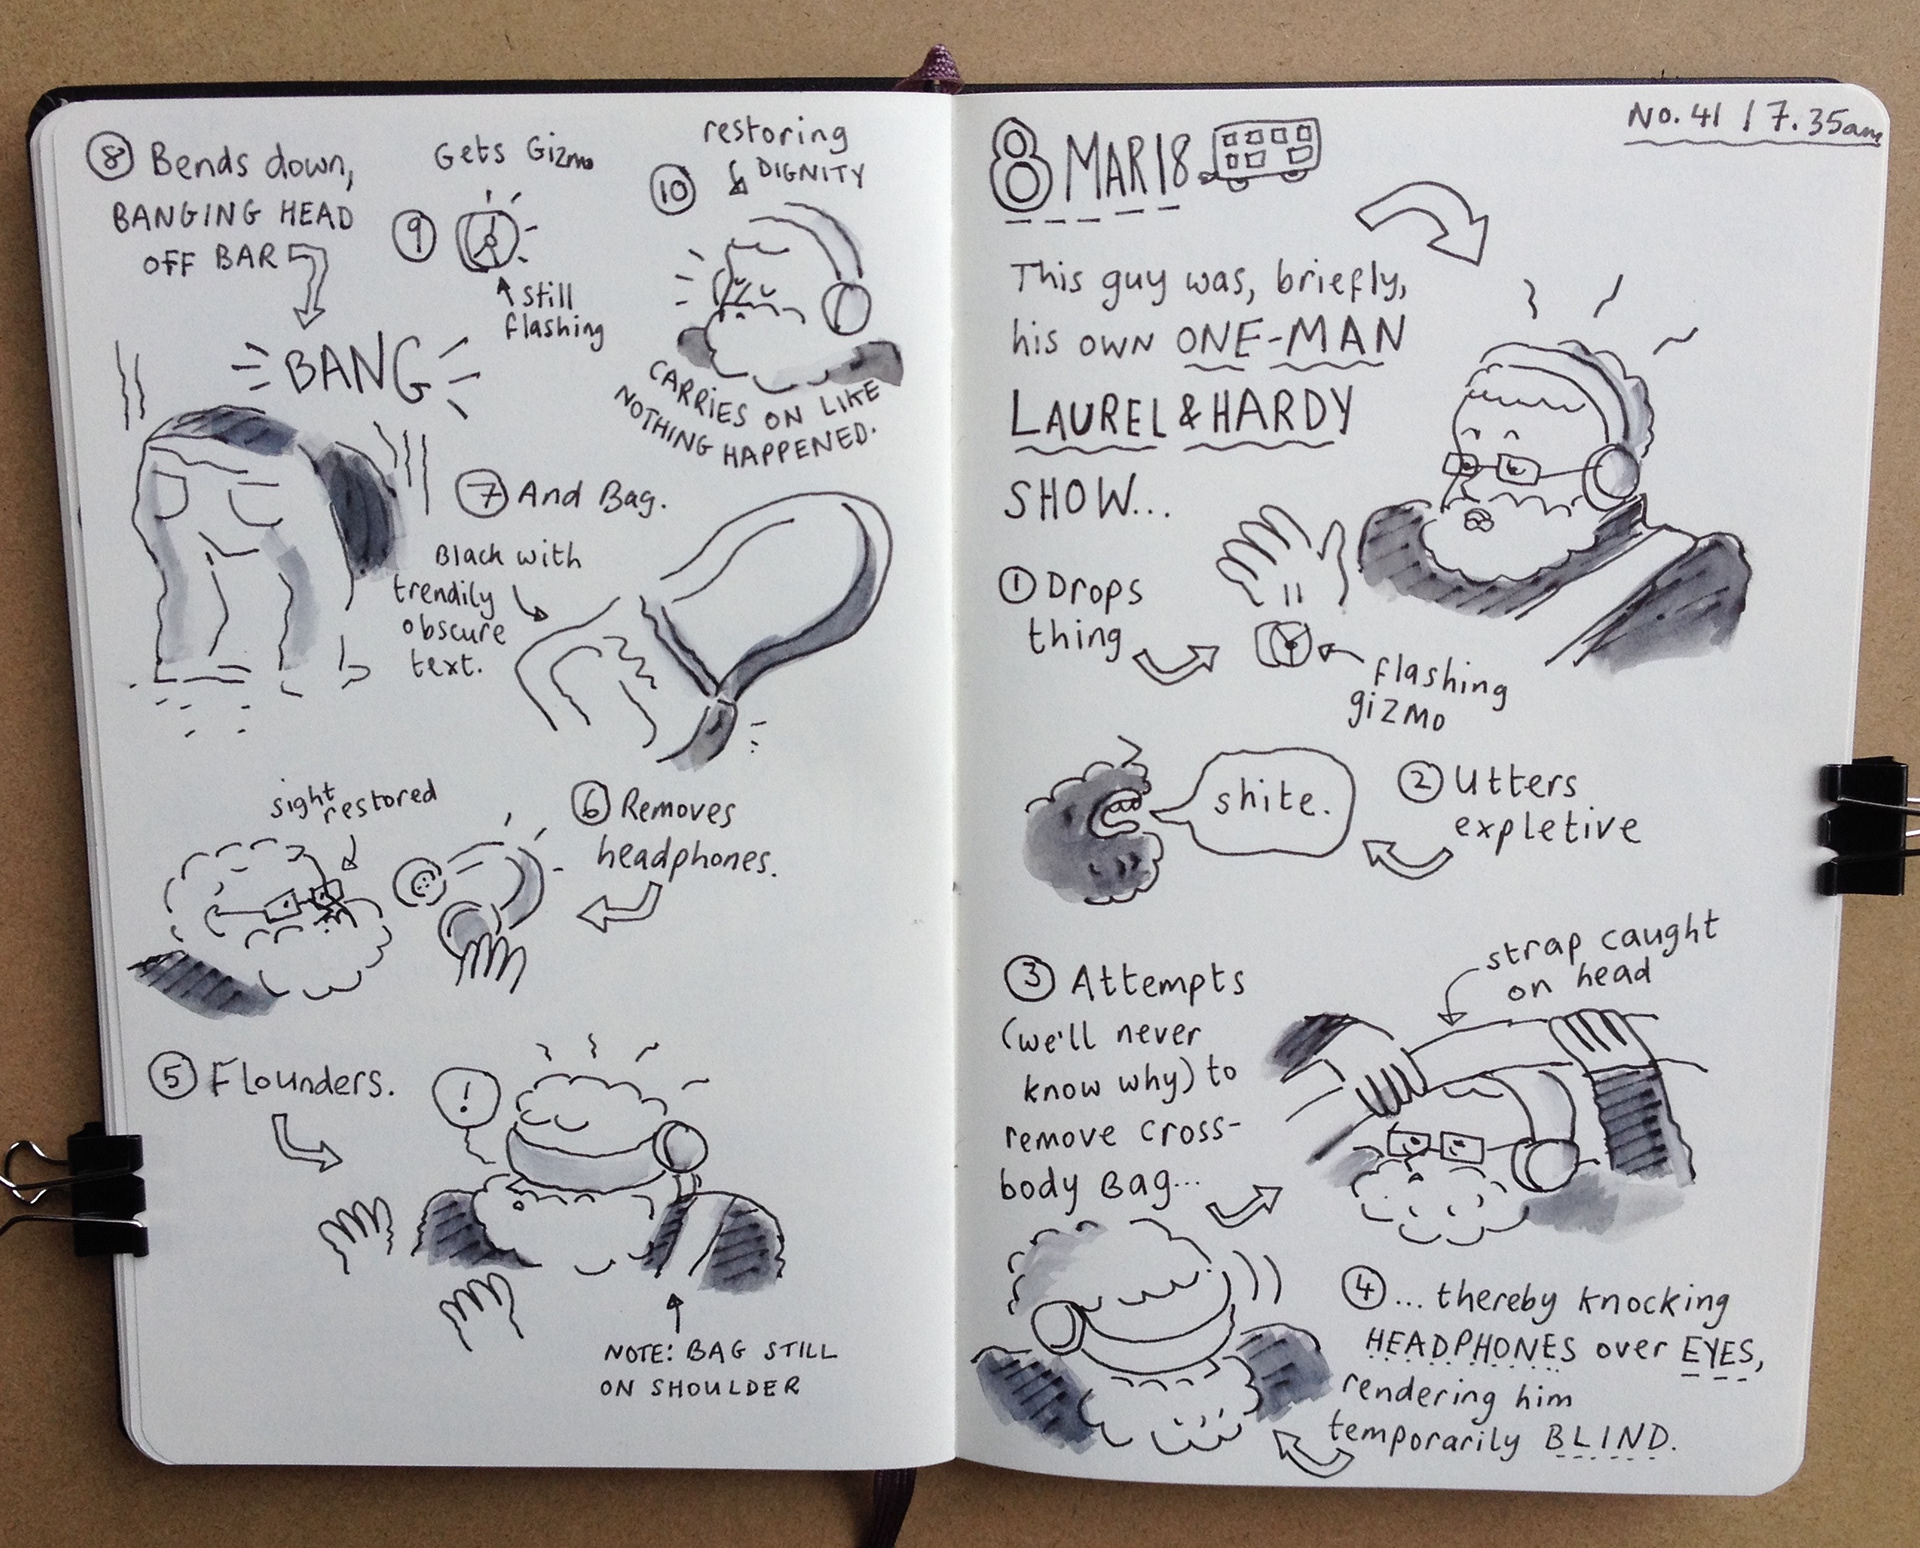 8 MAR 18
No. 41 | 7.35am
This guy was, briefly,
his own ONE-MAN
LAUREL & HARDY
SHOW...
① Drops
thing
flashing
gizmo
shite.
② Utters
expletive
③ Attempts
(we'll never
know why) to
remove cross-
body Bag...
strap caught
on head
④ ... thereby knocking
HEADPHONES over EYES,
rendering him
temporarily BLIND.
⑤ Flounders.
!
NOTE: BAG STILL
ON SHOULDER
⑥ Removes
headphones.
sight
restored
⑦ And Bag.
Black with
trendily
obscure
text.
⑧ Bends down,
BANGING HEAD
OFF BAR
BANG
Gets Gizmo
⑨
still
flashing
⑩
restoring
DIGNITY
CARRIES ON LIKE
NOTHING HAPPENED.